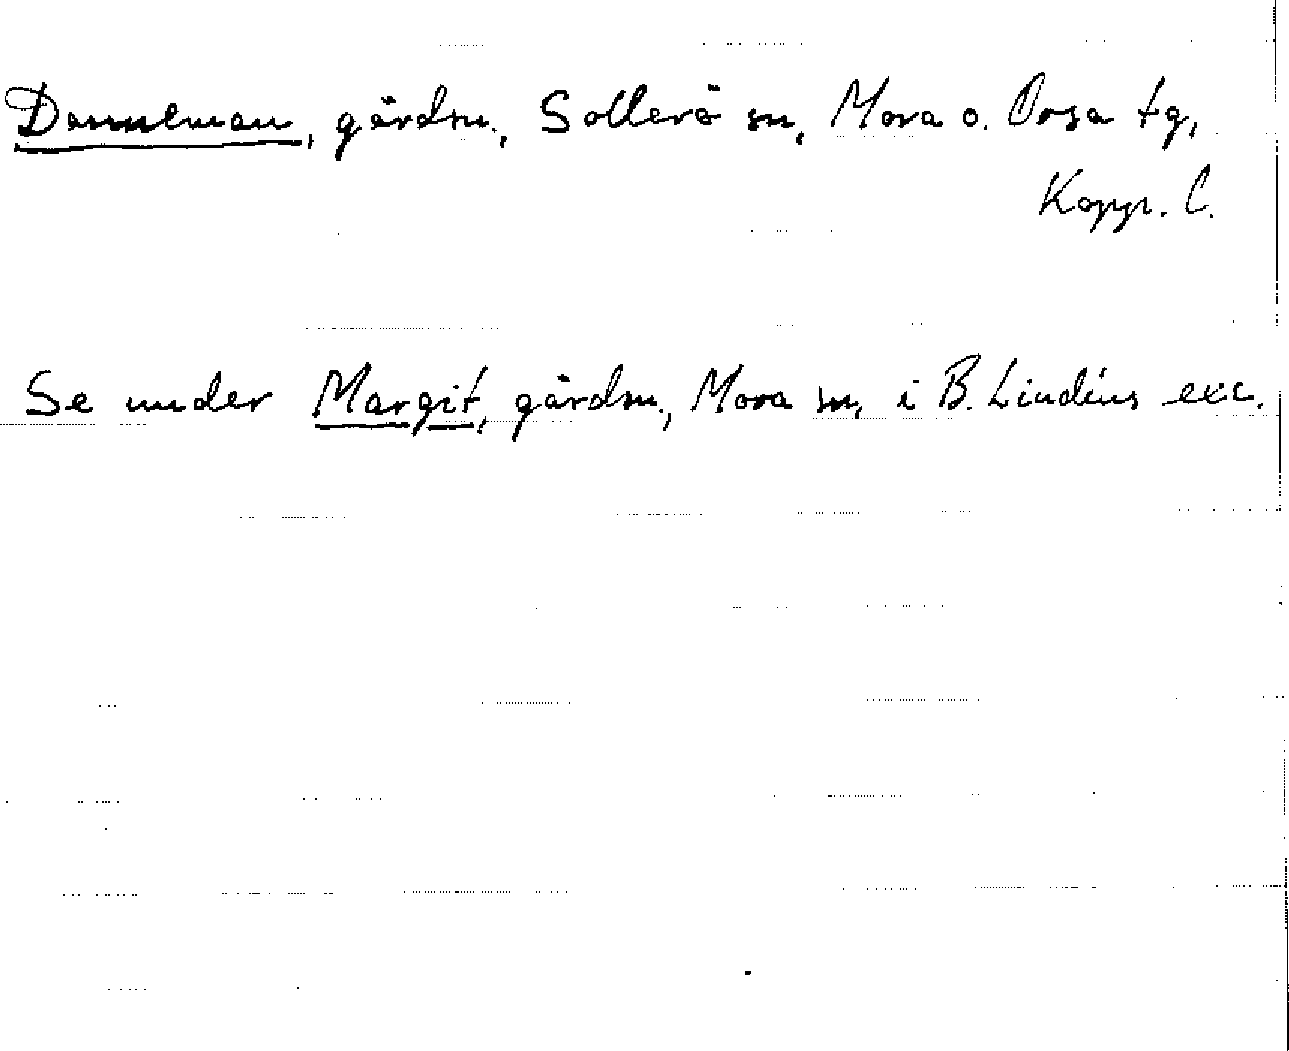 Dannelman, gårdsn., Sollerö sn, Mora o. Orsa tg,
Kopp. l.
Se under Margit, gårdsn., Mora sn, i B. Lindéns exc.